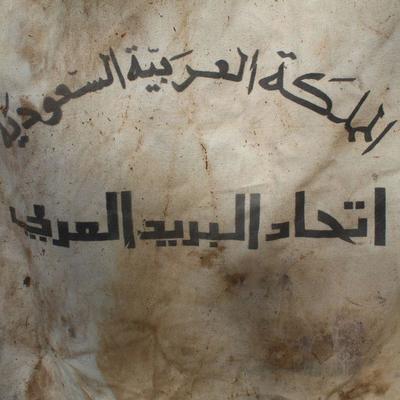 المملكة العربية السعودية
اتحاد البريد العربي